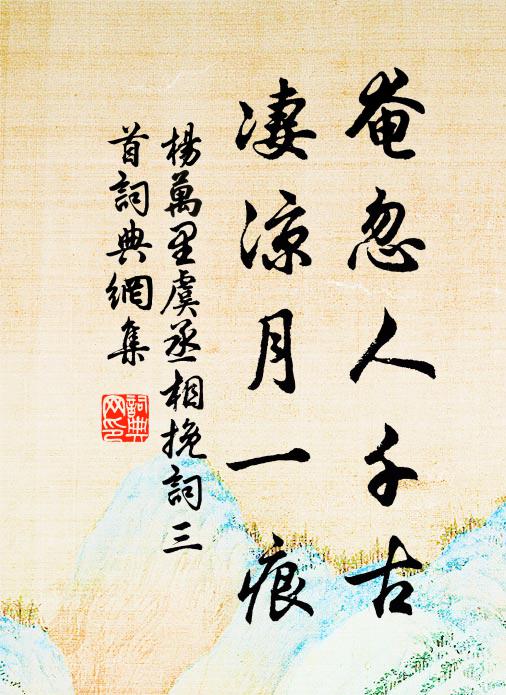 奄忽人千古
凄涼月一痕
楊萬里虞丞相挽詞三
首詞典網集
詞典
网印